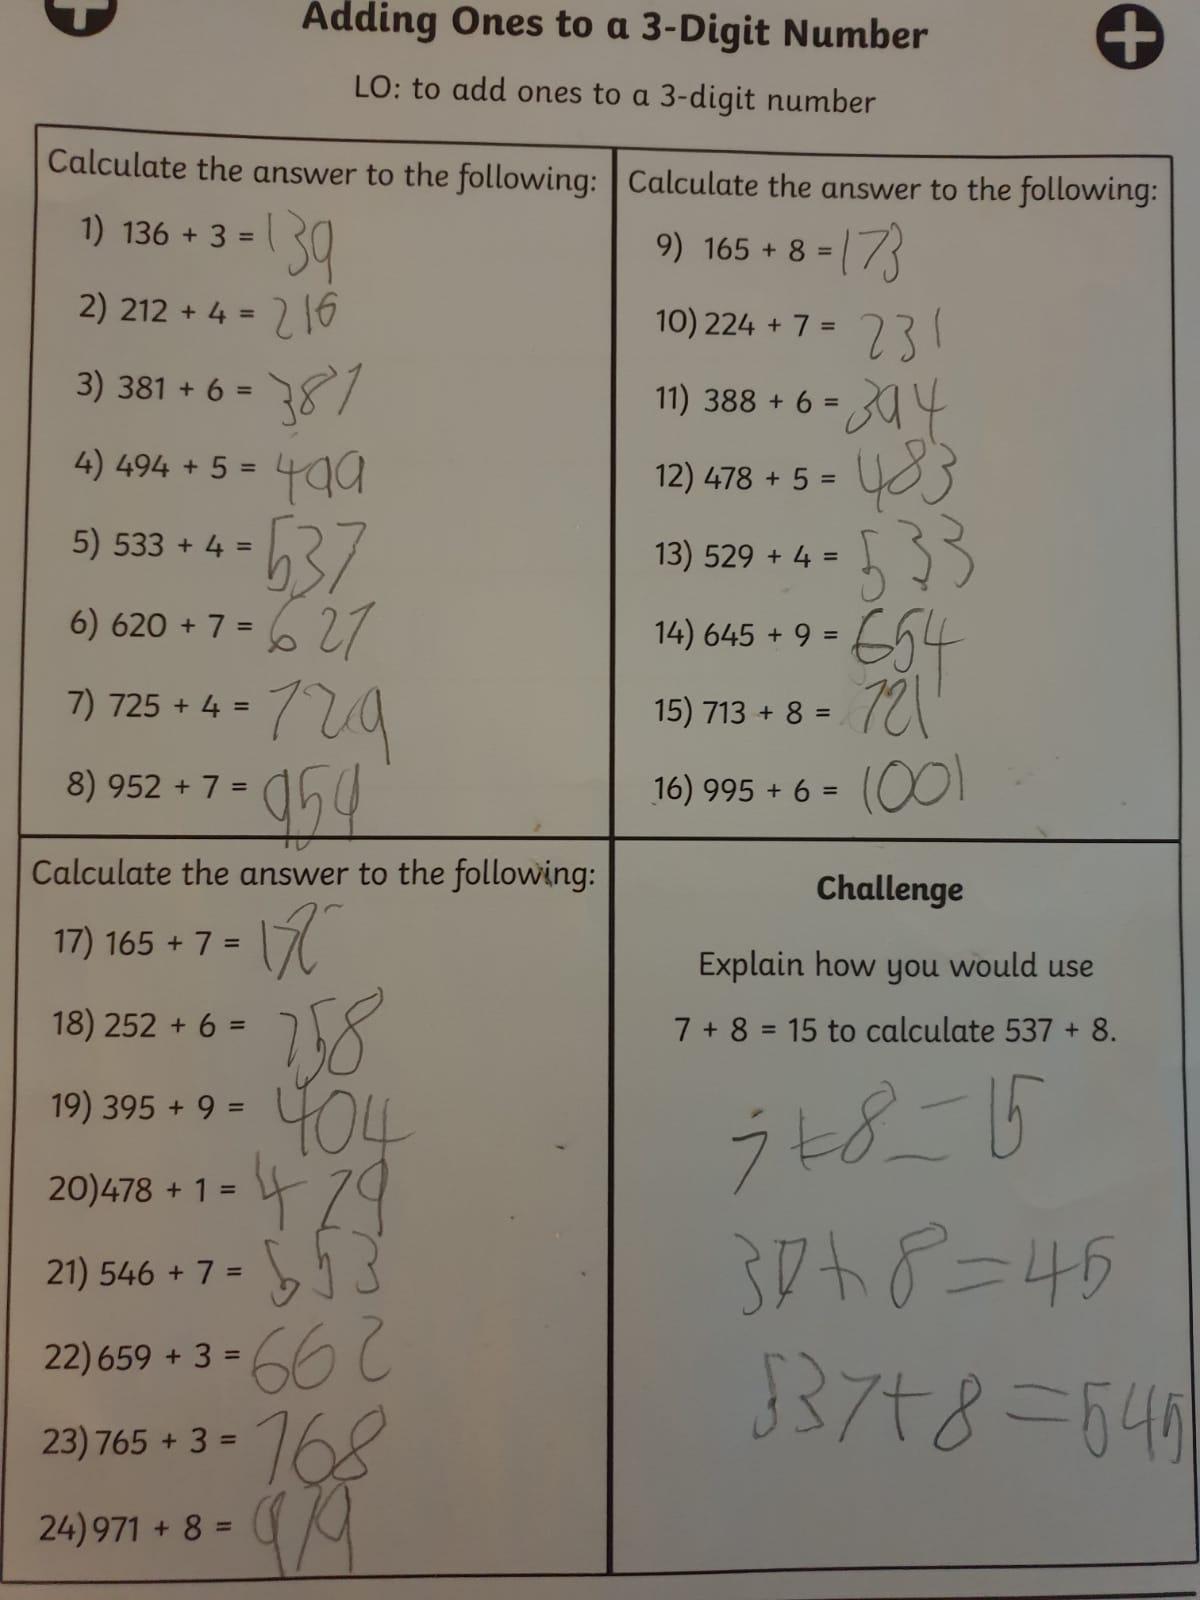 Adding Ones to a 3-Digit Number
LO: to add ones to a 3-digit number
Calculate the answer to the following:
1) 136 + 3 = 139
2) 212 + 4 = 216
3) 381 + 6 = 387
4) 494 + 5 = 499
5) 533 + 4 = 537
6) 620 + 7 = 627
7) 725 + 4 = 729
8) 952 + 7 = 959
Calculate the answer to the following:
9) 165 + 8 = 173
10) 224 + 7 = 231
11) 388 + 6 = 394
12) 478 + 5 = 483
13) 529 + 4 = 533
14) 645 + 9 = 654
15) 713 + 8 = 721
16) 995 + 6 = 1001
Calculate the answer to the following:
17) 165 + 7 =
18) 252 + 6 = 258
19) 395 + 9 = 404
20) 478 + 1 = 479
21) 546 + 7 = 553
22) 659 + 3 = 662
23) 765 + 3 = 768
24) 971 + 8 = 979
Challenge
Explain how you would use
7 + 8 = 15 to calculate 537 + 8.
7 + 8 = 15
37 + 8 = 45
537 + 8 = 545